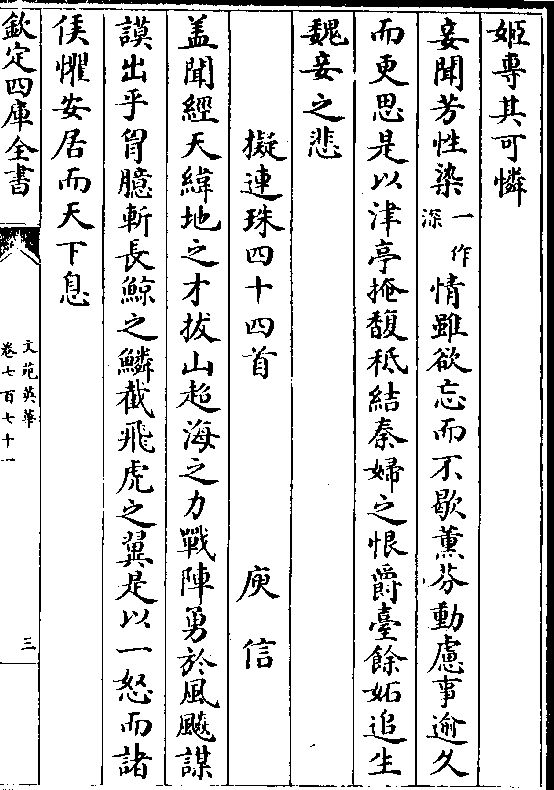 姬專其可憐
妾聞芳性染一作深情雖欲忘而不歇薰芬動慮事逾久
而更思是以津亭掩馥秪結秦婦之恨爵臺餘妬追生
魏妾之悲
擬連珠四十四首 庾信
盖聞經天緯地之才拔山超海之力戰陣勇於風飈謀
謨出乎胷臆斬長鯨之鱗截飛虎之翼是以一怒而諸
侯懼安居而天下息
欽定四庫全書 文苑英華 卷七百七十一 三